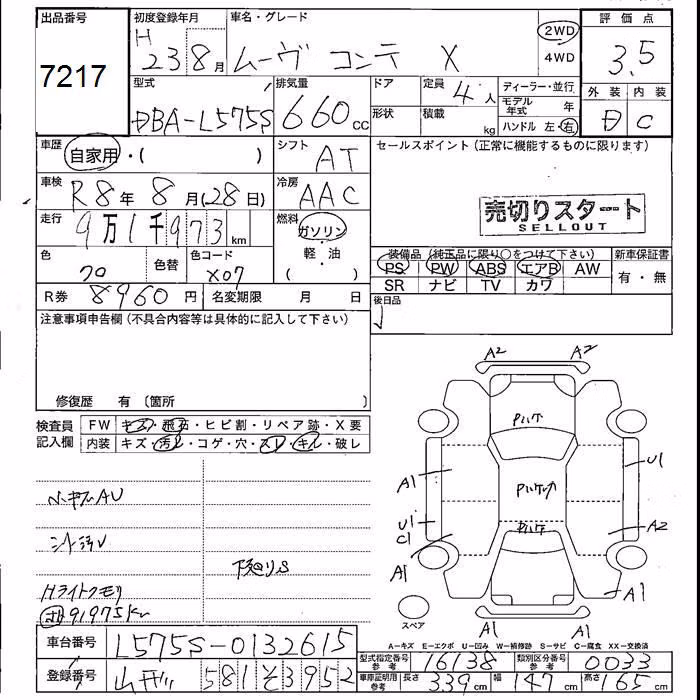 出品番号
7217
初度登録年月
H 23 8月
車名・グレード
ムーヴ コンテ X
2WD
4WD
評価点
3.5
外装 内装
D C
型式
DBA-L575S
排気量
660cc
ドア
形状
定員 4人
積載 kg
ディーラー・並行
モデル年式 年
ハンドル 左・右
車歴
自家用・( )
シフト
AT
セールスポイント(正常に機能するものに限ります)
車検
R8年 8月(28日)
冷房
AAC
売切りスタート
SELLOUT
走行
9万1千973km
燃料
ガソリン
軽・油
( )
色
色替
色コード
X07
装備品(純正品に限り○をつけて下さい)
PS PW ABS エアB AW
SR ナビ TV カワ
新車保証書
有・無
R券 8960円
名変期限 月 日
後日品
注意事項申告欄(不具合内容等は具体的に記入して下さい)
修復歴 有〔箇所 〕
検査員記入欄
FW キズ・飛石・ヒビ割・リペア跡・X要
内装 キズ・汚れ・コゲ・穴・スレ・キレ・破レ
小キズAU
シート汚レ
下廻りS
Hライトクモリ
91975km
A2 A2
A1
U1
U1
C1
A1
A2
A1
A1 A1
スペア
A−キズ E−エクボ U−凹み W−補修跡 S−サビ C−腐食 XX−交換済
車台番号
L575S-0132615
登録番号
581 そ 3952
型式指定番号 参考
16138
類別区分番号 参考
0033
車庫証明用 参考
長さ 339cm 幅 147cm 高さ 165cm